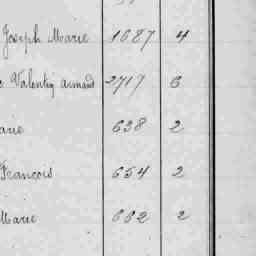 Joseph Marie 1687 4
Valentin Armand 2717 6
arie 638 2
François 654 2
Marie 662 2